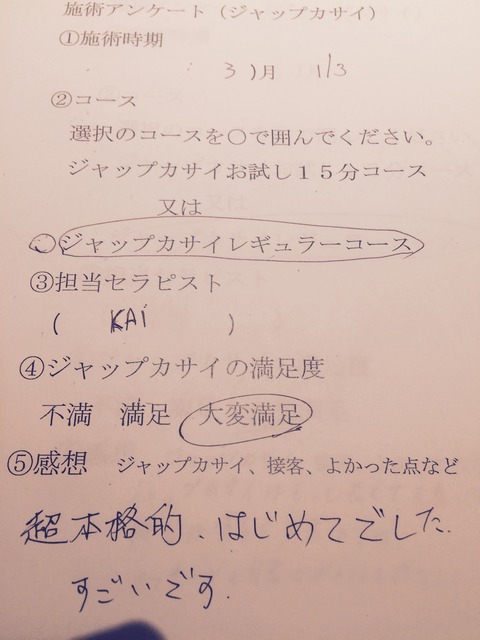 施術アンケート（ジャップカサイ）
①施術時期
3）月 1/3
②コース
選択のコースを○で囲んでください。
ジャップカサイお試し１５分コース
又は
○ジャップカサイレギュラーコース
③担当セラピスト
( KAi )
④ジャップカサイの満足度
不満　満足　大変満足
⑤感想　ジャップカサイ、接客、よかった点など
超本格的、はじめてでした.
すごいです.